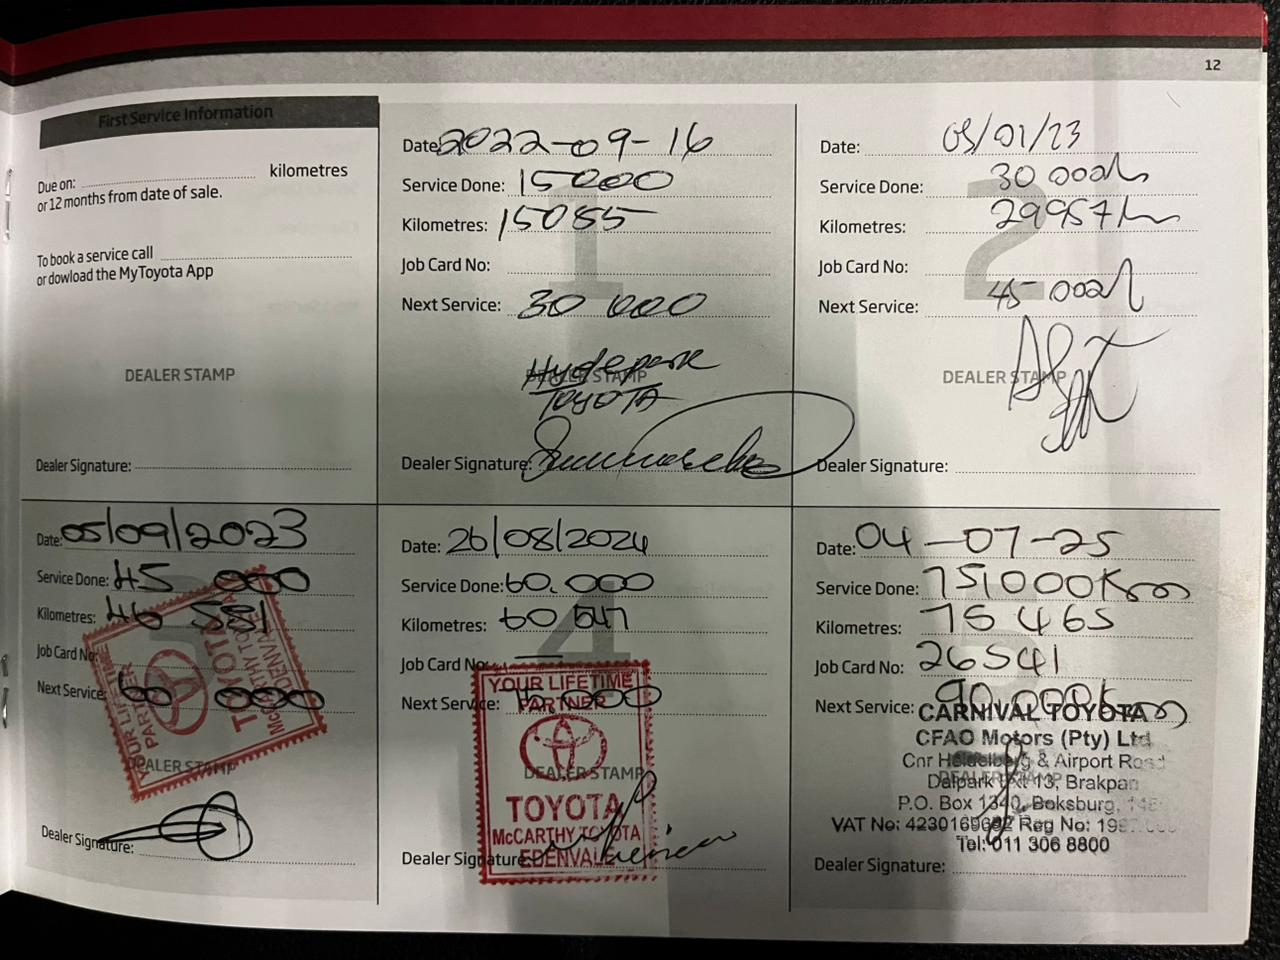 12
First Service Information
Due on: kilometres
or 12 months from date of sale.
To book a service call
or dowload the MyToyota App
DEALER STAMP
Dealer Signature:
1
Date: 2022-09-16
Service Done: 15000
Kilometres: 15085
Job Card No:
Next Service: 30 000
Hydepark
TOYOTA
DEALER STAMP
Dealer Signature:
2
Date: 05/01/23
Service Done: 30 000
Kilometres: 29957km
Job Card No:
Next Service: 45 000
DEALER STAMP
Dealer Signature:
3
Date: 05/09/2023
Service Done: 45 000
Kilometres: 46 581
Job Card No:
Next Service: 60 000
YOUR LIFETIME
PARTNER
TOYOTA
McCARTHY TOYOTA
EDENVALE
DEALER STAMP
Dealer Signature:
4
Date: 26/08/2024
Service Done: 60.000
Kilometres: 60 647
Job Card No: —
Next Service: .000
YOUR LIFETIME
PARTNER
DEALER STAMP
TOYOTA
McCARTHY TOYOTA
EDENVALE
Dealer Signature:
Date: 04-07-25
Service Done: 75,000Km
Kilometres: 75 465
Job Card No: 26541
Next Service: 90.000Km
CARNIVAL TOYOTA
CFAO Motors (Pty) Ltd
Cnr Heidelberg & Airport Road
Dalpark Ext 13, Brakpan
DEALER STAMP
P.O. Box 1340, Boksburg,
VAT No: 4230169692 Reg No:
Tel: 011 306 8800
Dealer Signature: